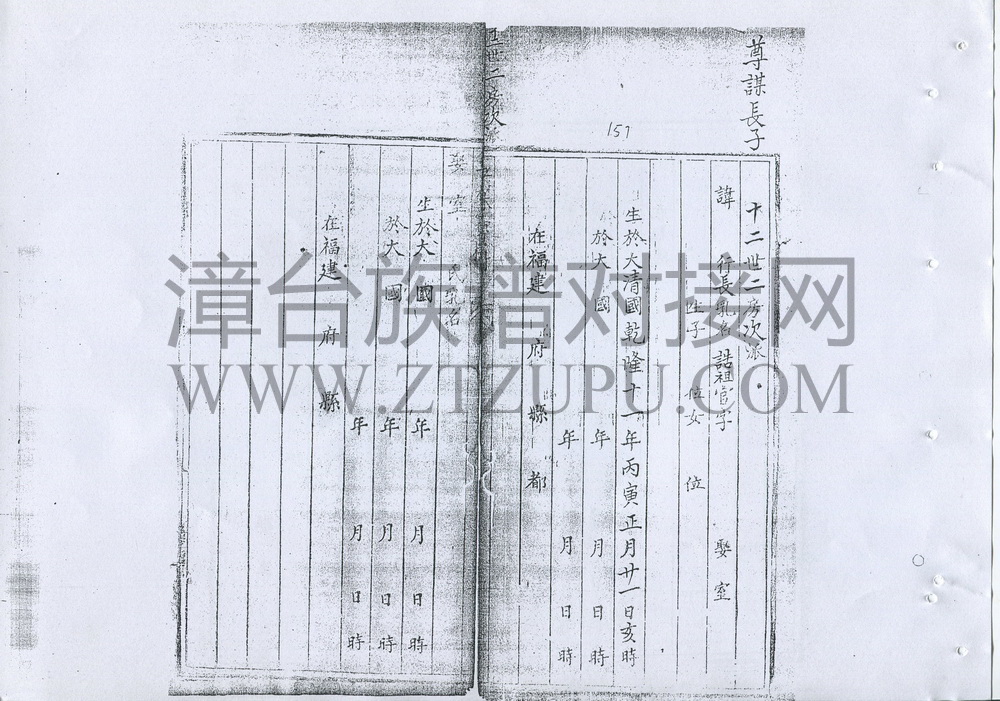 尊謀長子
151
十二世二房次派
諱 行長乳名 誥祖官字 娶室
生子 位女 位
生於大清國乾隆十一年丙寅正月廿一日亥時
於大 國 年 月 日 時
年 月 日 時
在福建 府 縣 都
世二房次派
娶室 氏乳名
生於大 國 年 月 日 時
於大 國 年 月 日 時
年 月 日 時
在福建 府 縣
漳台族谱对接网
WWW.ZTZUPU.COM